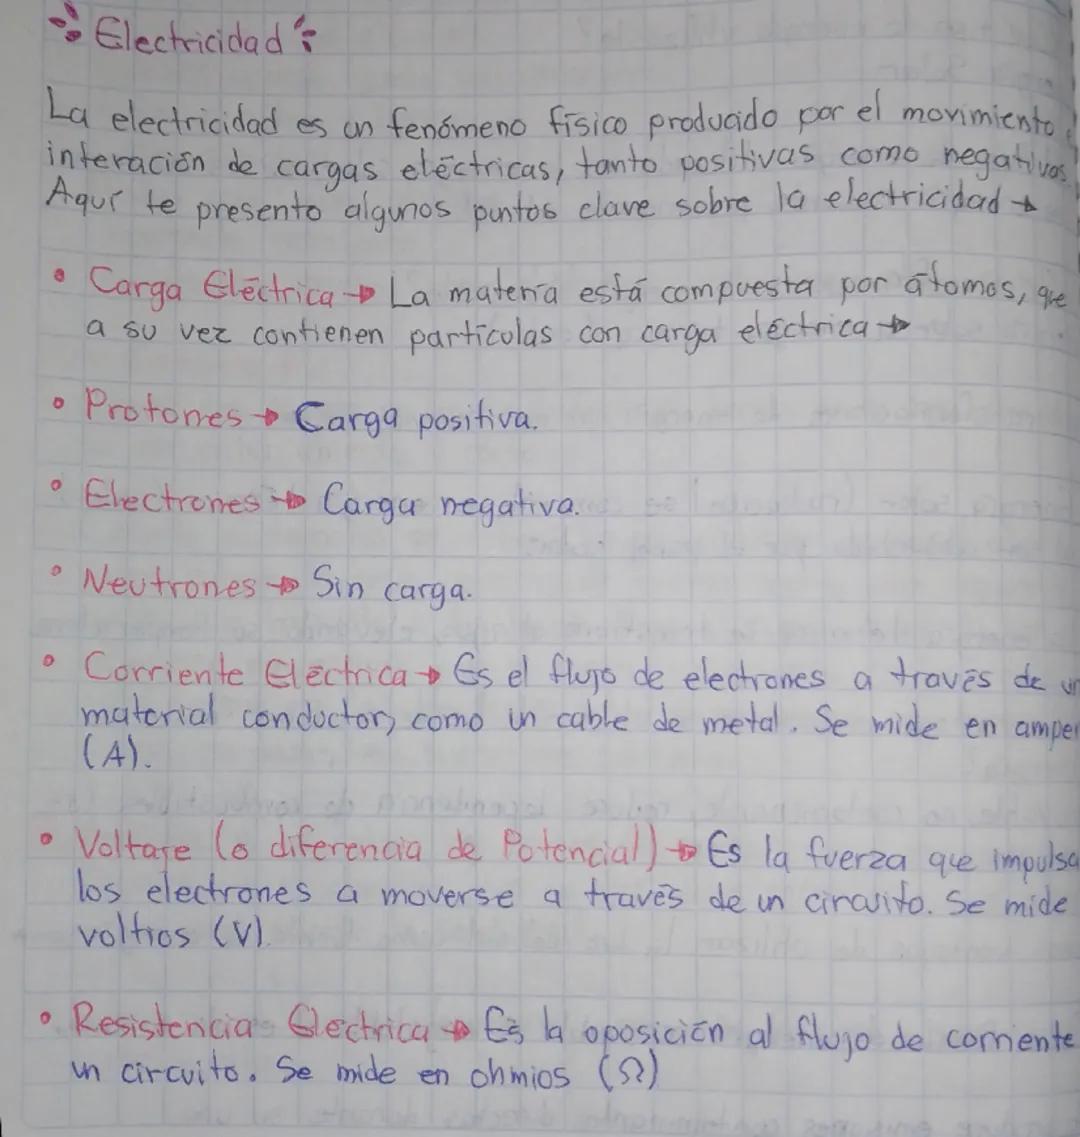 Electricidad
La electricidad es un fenómeno físico producido por el movimiento
interación de cargas eléctricas, tanto positivas como negativas.
Aquí te presento algunos puntos clave sobre la electricidad →
• Carga Eléctrica → La materia está compuesta por átomos, que
a su vez contienen partículas con carga eléctrica →
• Protones → Carga positiva.
• Electrones → Carga negativa.
• Neutrones → Sin carga.
• Corriente Eléctrica → Es el flujo de electrones a través de un
material conductor, como un cable de metal. Se mide en amper
(A).
• Voltaje (o diferencia de Potencial) → Es la fuerza que impulsa
los electrones a moverse a través de un circuito. Se mide
voltios (V).
• Resistencia Electrica → Es la oposición al flujo de corriente
un circuito. Se mide en ohmios (Ω)